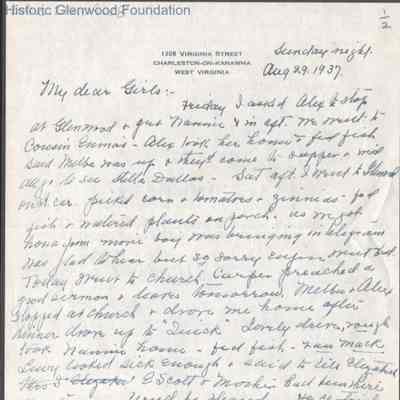 Historic Glenwood Foundation
1/2
1208 VIRGINIA STREET
CHARLESTON-ON-KANAWHA
WEST VIRGINIA
Sunday night
Aug 29, 1937.
My dear Girls:-
Friday I asked Alex to stop
at Glenwood & get Nannie & in aft. we went to
Cousin Emma's - Alex took her home & fed fish
said Melba was up & they'd come to supper & we'd
all go to see Stella Dallas - Sat aft. I went to Glenwood
on car picked corn & tomatoes & zinnias - fed
fish & watered plants on porch. as we got
home from movie boy was bringing in telegram
was glad to hear but so sorry
Today went to church Carper preached a
good sermon & leaves tomorrow. Melba & Alex
stopped at church & drove me home after
dinner drove up to "Quick" Lovely drive, rough
took Nannie home - fed fish - saw Mack
looked sick enough & said to tell Elizabeth
E Scott & had been here